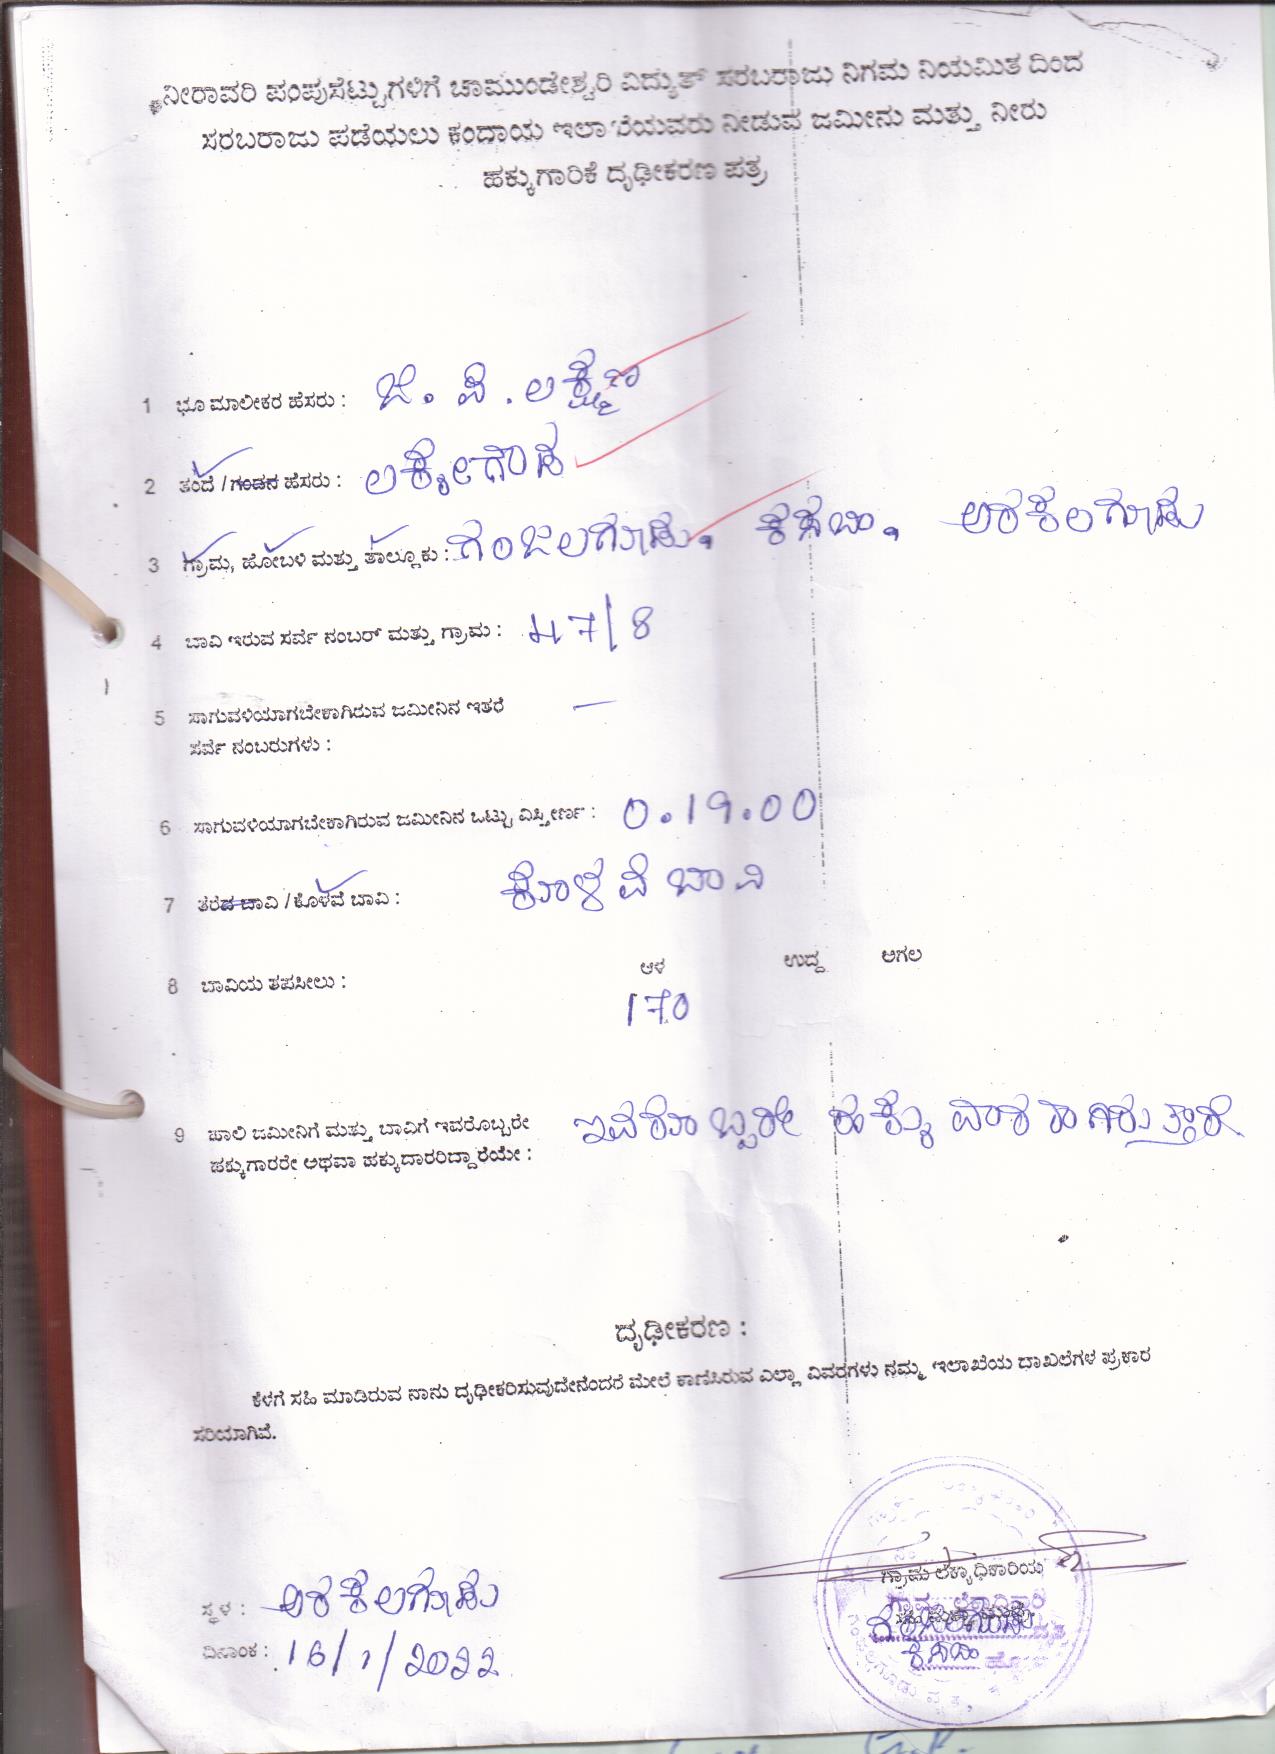 ನೀರಾವರಿ ಪಂಪುಸೆಟ್ಟುಗಳಿಗೆ ಚಾಮುಂಡೇಶ್ವರಿ ವಿದ್ಯುತ್ ಸರಬರಾಜು ನಿಗಮ ನಿಯಮಿತ ದಿಂದ
ಸರಬರಾಜು ಪಡೆಯಲು ಕಂದಾಯ ಇಲಾಖೆಯವರು ನೀಡುವ ಜಮೀನು ಮತ್ತು ನೀರು
ಹಕ್ಕುಗಾರಿಕೆ ದೃಢೀಕರಣ ಪತ್ರ
1 ಭೂ ಮಾಲೀಕರ ಹೆಸರು : ಜಿ. ವಿ. ಲಕ್ಷ್ಮಣ
2 ತಂದೆ / ಗಂಡನ ಹೆಸರು : ಲಕ್ಕೇಗೌಡ
3 ಗ್ರಾಮ, ಹೋಬಳಿ ಮತ್ತು ತಾಲ್ಲೂಕು : ಗಂಜಲಗೂಡು. ಕಸಬಾ. ಅರಕಲಗೂಡು
4 ಬಾವಿ ಇರುವ ಸರ್ವೆ ನಂಬರ್ ಮತ್ತು ಗ್ರಾಮ : 47/8
5 ಸಾಗುವಳಿಯಾಗಬೇಕಾಗಿರುವ ಜಮೀನಿನ ಇತರೆ —
ಸರ್ವೆ ನಂಬರುಗಳು :
6 ಸಾಗುವಳಿಯಾಗಬೇಕಾಗಿರುವ ಜಮೀನಿನ ಒಟ್ಟು ವಿಸ್ತೀರ್ಣ : 0.19.00
7 ತೆರೆದ ಬಾವಿ / ಕೊಳವೆ ಬಾವಿ : ಕೊಳವೆ ಬಾವಿ
8 ಬಾವಿಯ ತಪಸೀಲು : ಆಳ ಉದ್ದ ಅಗಲ
170
9 ಖಾಲಿ ಜಮೀನಿಗೆ ಮತ್ತು ಬಾವಿಗೆ ಇವರೊಬ್ಬರೇ ಇವರೊಬ್ಬರೇ ಹಕ್ಕು ದಾರರಾಗಿರುತ್ತಾರೆ
ಹಕ್ಕುಗಾರರೇ ಅಥವಾ ಹಕ್ಕುದಾರರಿದ್ದಾರೆಯೇ :
ದೃಢೀಕರಣ :
ಕೆಳಗೆ ಸಹಿ ಮಾಡಿರುವ ನಾನು ದೃಢೀಕರಿಸುವುದೇನೆಂದರೆ ಮೇಲೆ ಕಾಣಿಸಿರುವ ಎಲ್ಲಾ ವಿವರಗಳು ನಮ್ಮ ಇಲಾಖೆಯ ದಾಖಲೆಗಳ ಪ್ರಕಾರ
ಸರಿಯಾಗಿವೆ.
ಗ್ರಾಮ ಲೆಕ್ಕಾಧಿಕಾರಿಯ
ಸ್ಥಳ : ಅರಕಲಗೂಡು
ಗಂಜಲಗೂಡು
ದಿನಾಂಕ : 16/1/2022
ಕಸಬಾ